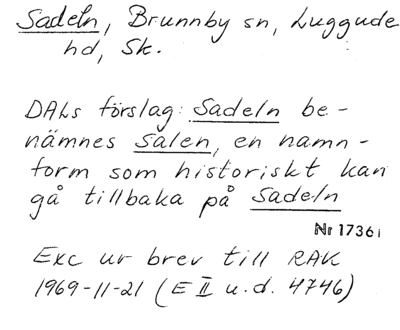 Sadeln, Brunnby sn, Luggude
hd, Sk.
DALs förslag: Sadeln be-
nämnes Salen, en namn-
form som historiskt kan
gå tillbaka på Sadeln
Nr 1736 i
Exc ur brev till RAK
1969-11-21 (E II u.d. 4746)